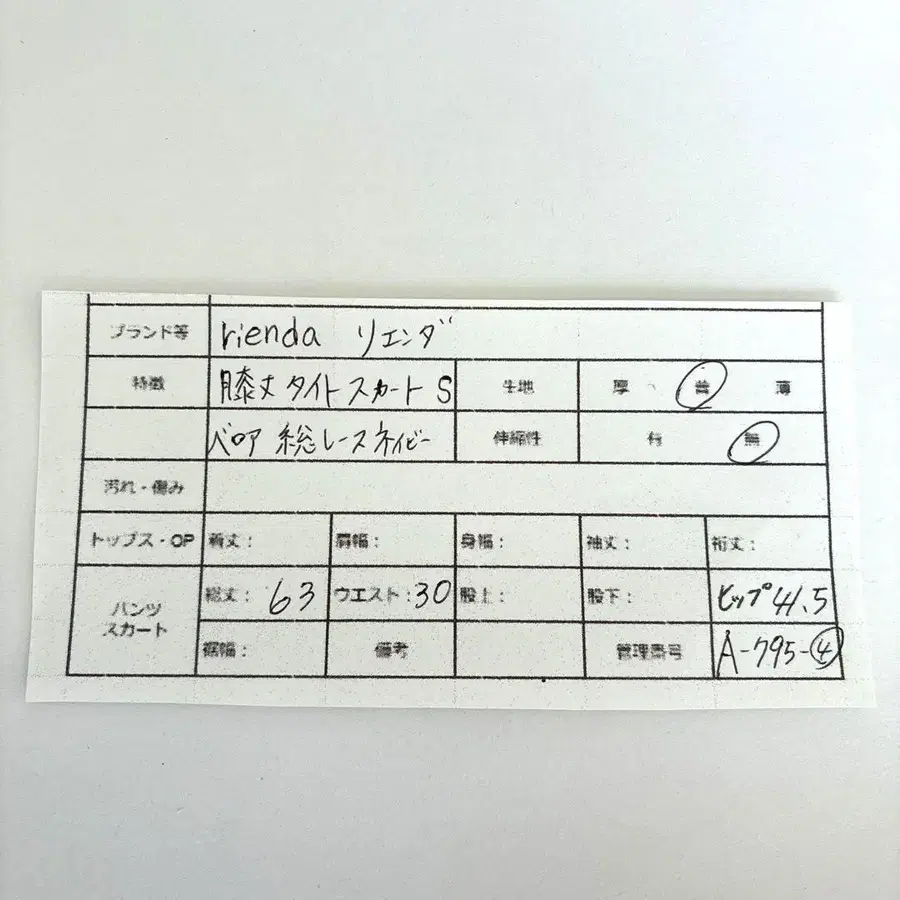 ブランド等 rienda リエンダ
特徴 膝丈タイトスカート S 生地 厚 普 薄
ベロア 総レース ネイビー 伸縮性 有 無
汚れ・傷み
トップス・OP 着丈: 肩幅: 身幅: 袖丈: 裄丈:
パンツ スカート 総丈: 63 ウエスト: 30 股上: 股下: ヒップ 41.5
裾幅: 備考 管理番号 A-795-④